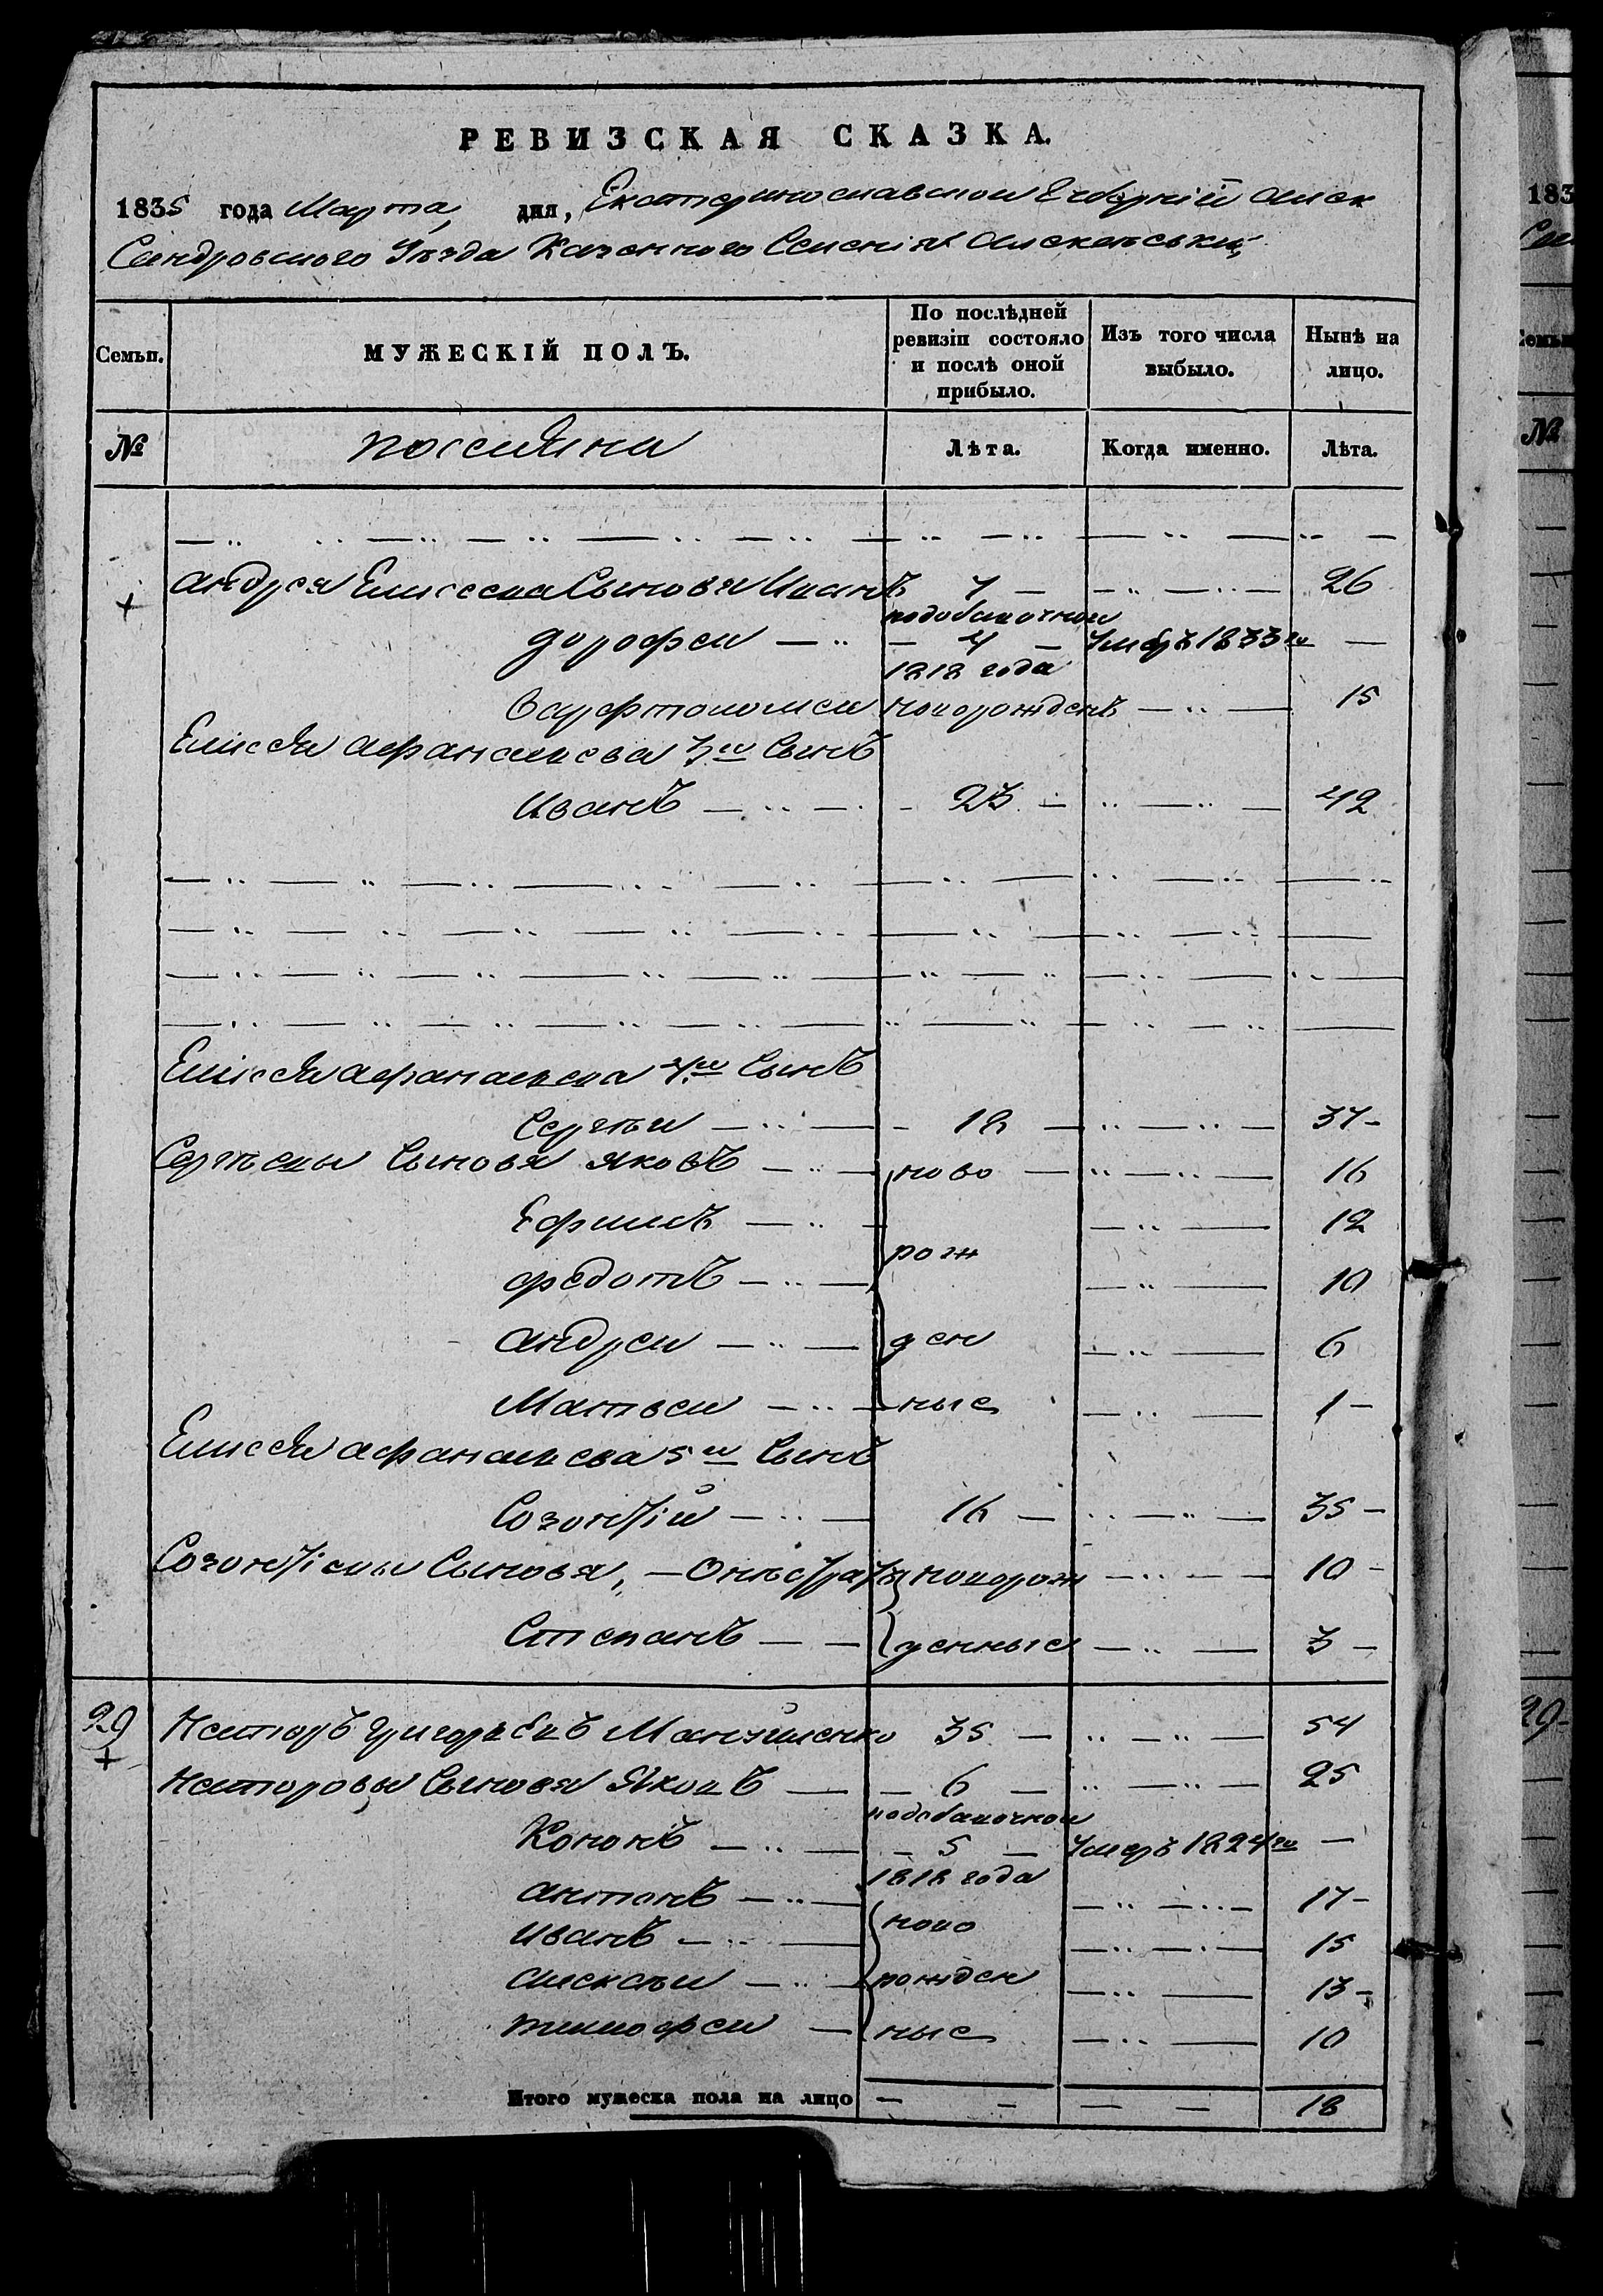 РЕВИЗСКАЯ СКАЗКА.
1835 года Марта, дня, Екатеринославской Губерніи Алек
Сандровского Уезда Казенного Селенія
Семьи. МУЖЕСКІЙ ПОЛЪ. По послѣдней ревизіи состояло и послѣ оной прибыло. Изъ того числа выбыло. Нынѣ на лицо.
№ поселяни Лѣта. Когда именно. Лѣта.
Андрея Елисеева Сыновья Иванъ 7 26
подобавочной
дорофеи 4 Умеръ 1833го
1818 года
Варфтоломеи новорожденъ 15
Елисея Афанасиева 3й Сынъ
Иванъ 23 42
Елисея Афанасиева 4й Сынъ
Сергеи 18 37
Сергеевы Сыновья Яковъ ново 16
Ефимъ 12
рож
федотъ 10
Андреи ден 6
Матвеи ные 1
Елисея Афанасиева 5й Сынъ
Созонтiй 16 35
Созонтiевы Сыновья, новорож 10
Степанъ денные 3
29 Несторъ Григорьевъ 35 54
Несторовы Сыновья Яковъ 6 25
подобавочной
Кононъ 5 Умеръ 1824го
1818 года
Антонъ 17
Иванъ ново 15
Алексеи рожден 13
тимофеи ные 10
Итого мужеска пола на лицо 18